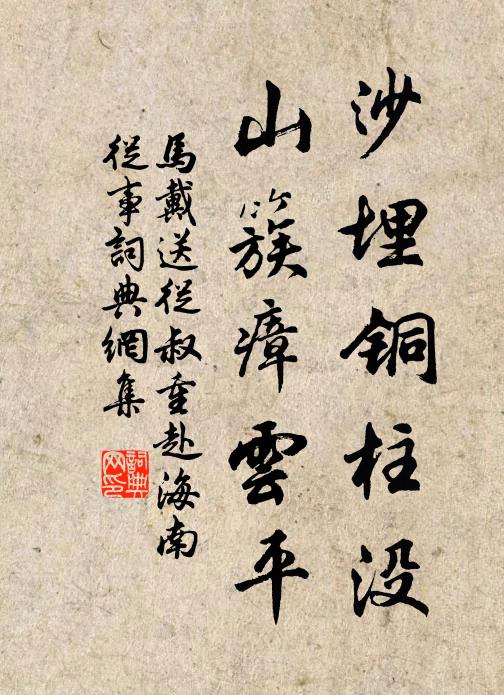 沙埋铜柱没
山簇瘴雲平
馬戴送從叔重赴海南
從事詞典網集
詞典網印